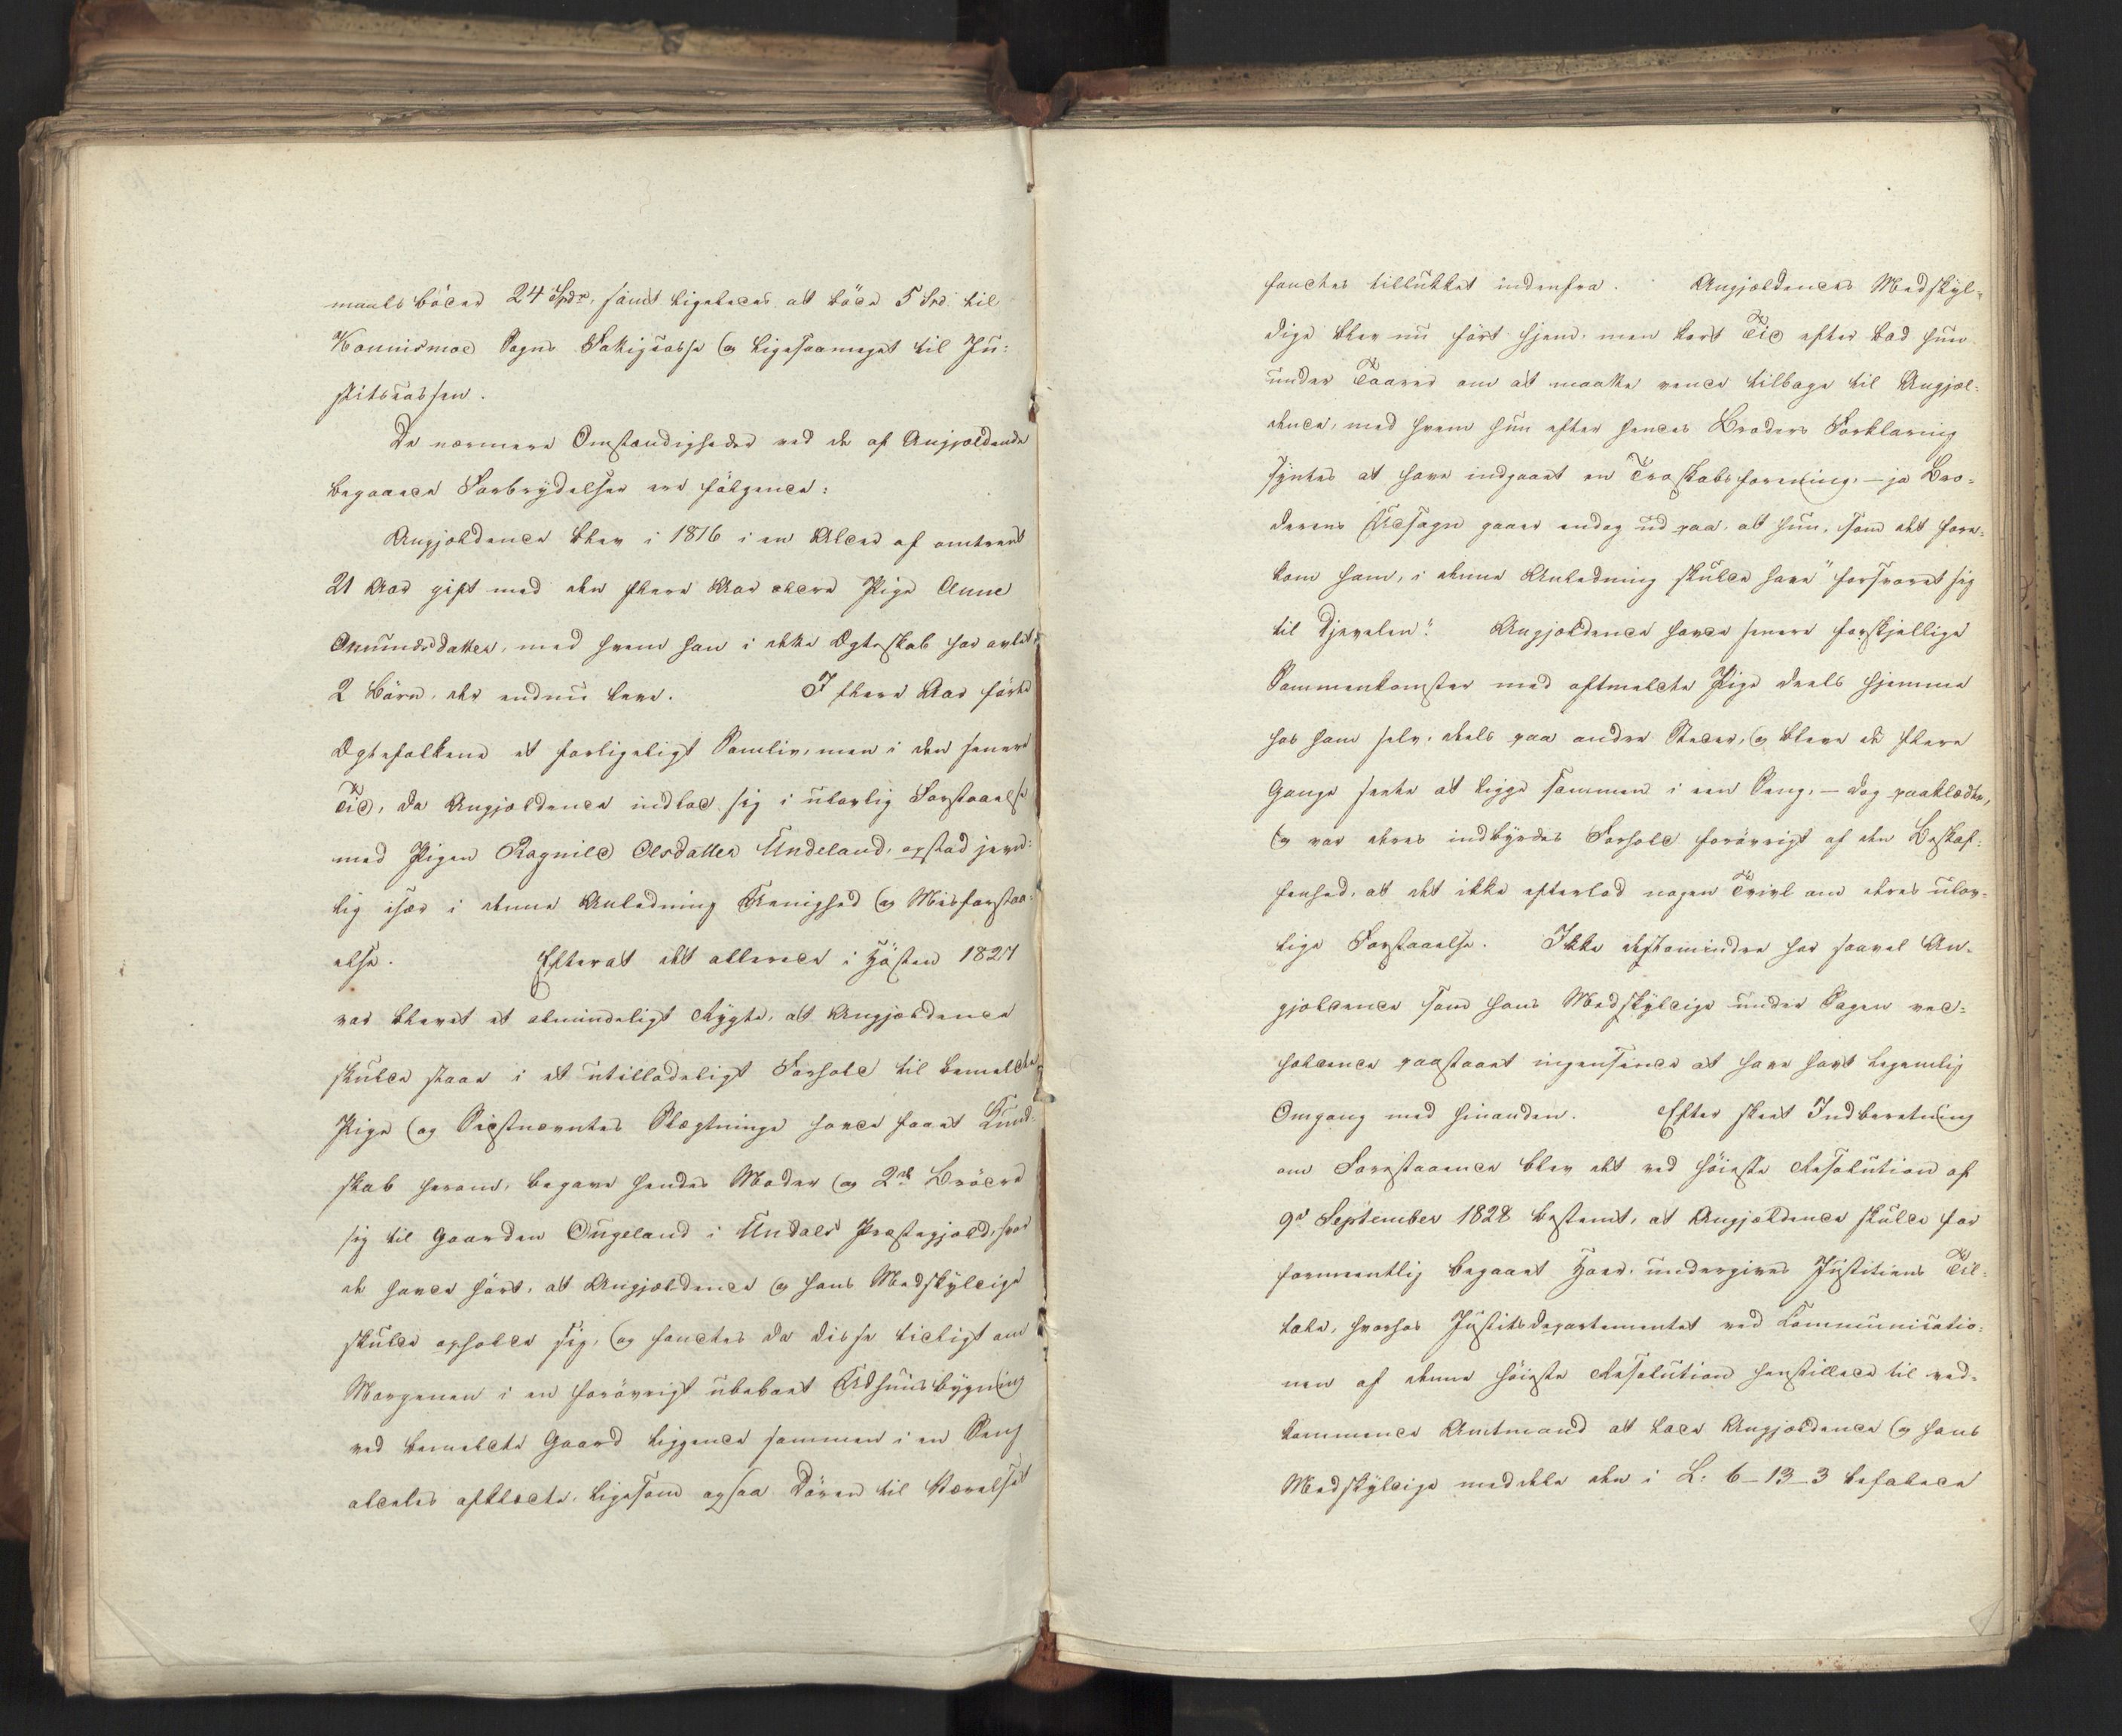 maalsböder 24 Spdr, samt ligeledes at böde 5 Spd. til
Konnismoe Sogns Fattigcasse og ligesaameget til Ju-
stitscassen.
De nærmere Omstændigheder ved de af Angjældende
begaaede Forbrydelser ere fölgende:
Angjældende blev i 1816 i en Alder af omtrent
21 Aar gift med den flere Aar ældre Pige Anne
Omundsdatter, med hvem han i dette Ægteskab har avlet
2 Börn, der endnu leve. I flere Aar förte
Ægtefolkene et forligeligt Samliv, men i den senere
Tid, da Angjældende indlod sig i ulovlig Forstaaelse
med Pigen Ragnild Olsdatter Undeland, opstod jevn-
lig især i denne Anledning Uenighed og Misforstaa-
else. Efterat det allerede i Hösten 1827
var blevet et almindeligt Rygte, at Angjældende
skulde staae i et utilladeligt Forhold til bemeldte
Pige og Sidstnævntes Slægtninge havde faaet Kund-
skab herom, begave hendes Moder og 2de Brödre
sig til Gaarden Ougeland i Undals Præstegjæld, hvor
de havde hört, at Angjældende og hans Medskyldige
skulde opholde sig, og fandtes da disse tidligt om
Morgenen i en forövrigt ubeboet Udhuusbygning
ved bemeldte Gaard liggende sammen i en Seng
aldeles afklædte, ligesom ogsaa Dören til Værelset
fandtes tillukket indenfra. Angjældendes Medskyl-
dige blev nu fört hjem, men kort Tid efter bad hun
under Taarer om at maatte vende tilbage til Angjæl-
dende, med hvem hun efter hendes Broders Forklaring
syntes at have indgaaet en Troskabsforening, - ja Bro-
derens Udsagn gaaer endog ud paa, at hun, som det fore-
kom ham, i denne Anledning skulde have "forsvoret sig
til Djævelen". Angjældende havde senere forskjellige
Sammenkomster med oftmeldte Pige deels hjemme
hos ham selv, deels paa andre Steder, og bleve de flere
Gange seete at ligge sammen i een Seng, - dog paaklædte,
og var deres indbyrdes Forhold forövrigt af den Beskaf-
fenhed, at det ikke efterlod nogen Tvivl om deres ulov-
lige Forstaaelse. Ikke destomindre har saavel An-
gjældende som hans Medskyldige under Sagen ved-
holdende paastaaet ingensinde at have havt legemlig
Omgang med hinanden. Efter skeet Indberetning
om Forestaaende blev det ved höieste Resolution af
9de September 1828 bestemt, at Angjældende skulde for
formeentlig begaaet Hoer, undergives Justitiens Til-
tale, hvorhos Justitsdepartementet ved Communicatio-
nen af denne höieste Resolution henstillede til ved-
kommende Amtmand at lade Angjældende og hans
Medskyldige meddele den i L: 6-13-3 befalede